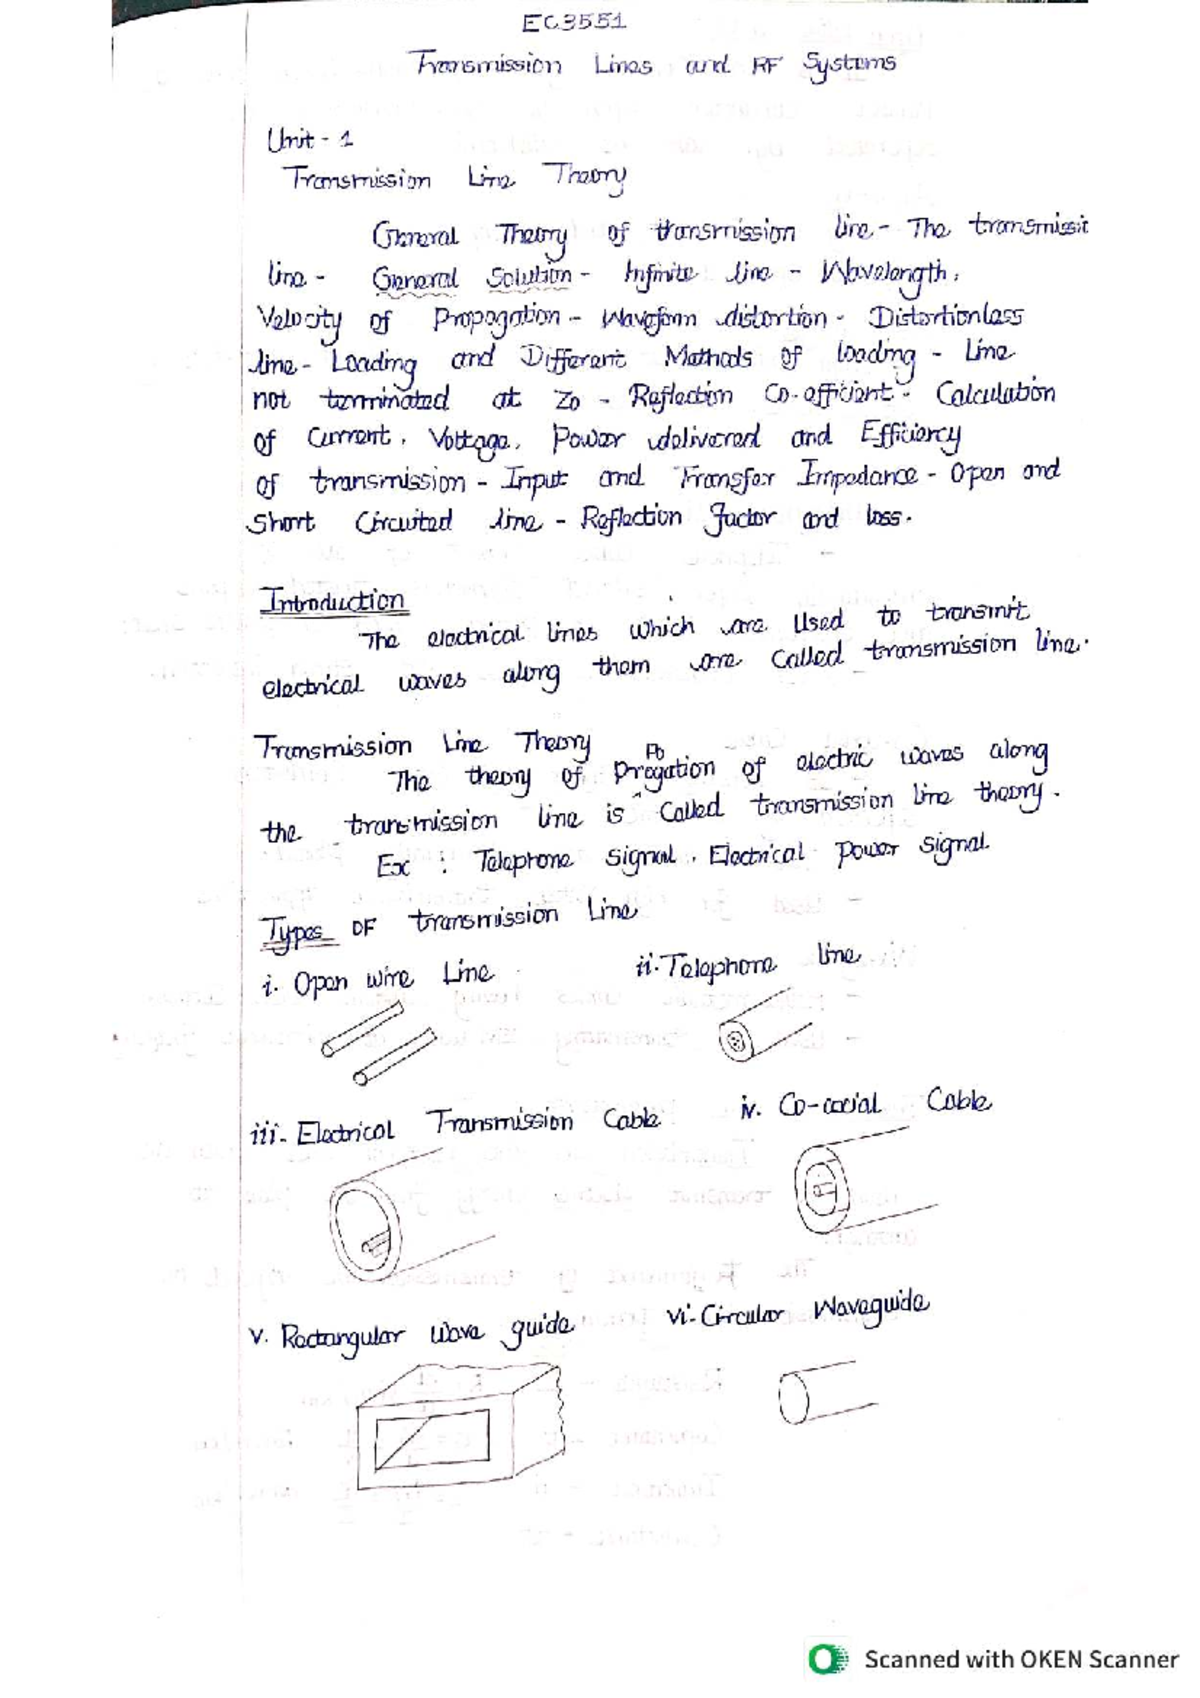 EC3551
Transmission Lines and RF Systems
Unit - 1
Transmission Line Theory
General Theory of transmission line - The transmissi
line - General Solution - Infinite line - Wavelength,
Velocity of Propogation - Waveform distortion - Distortionless
line - Loading and Different Methods of loading - Line
not terminated at Zo - Reflection Co-efficient - Calculation
of Current, Voltage, Power delivered and Efficiency
of transmission - Input and Transfer Impedance - Open and
Short Circuited line - Reflection factor and loss.
Introduction
The electrical lines which are used to transmit
electrical waves along them are called transmission line.
Transmission Line Theory
The theory of Propogation of electric waves along
the transmission line is Called transmission line theory.
Ex : Telephone signal, Electrical power signal.
Types OF transmission Line
i. Open wire Line
ii. Telephone line
iii. Electrical Transmission Cable
iv. Co-axial Cable
v. Rectangular wave guide
vi. Circular Waveguide
Scanned with OKEN Scanner